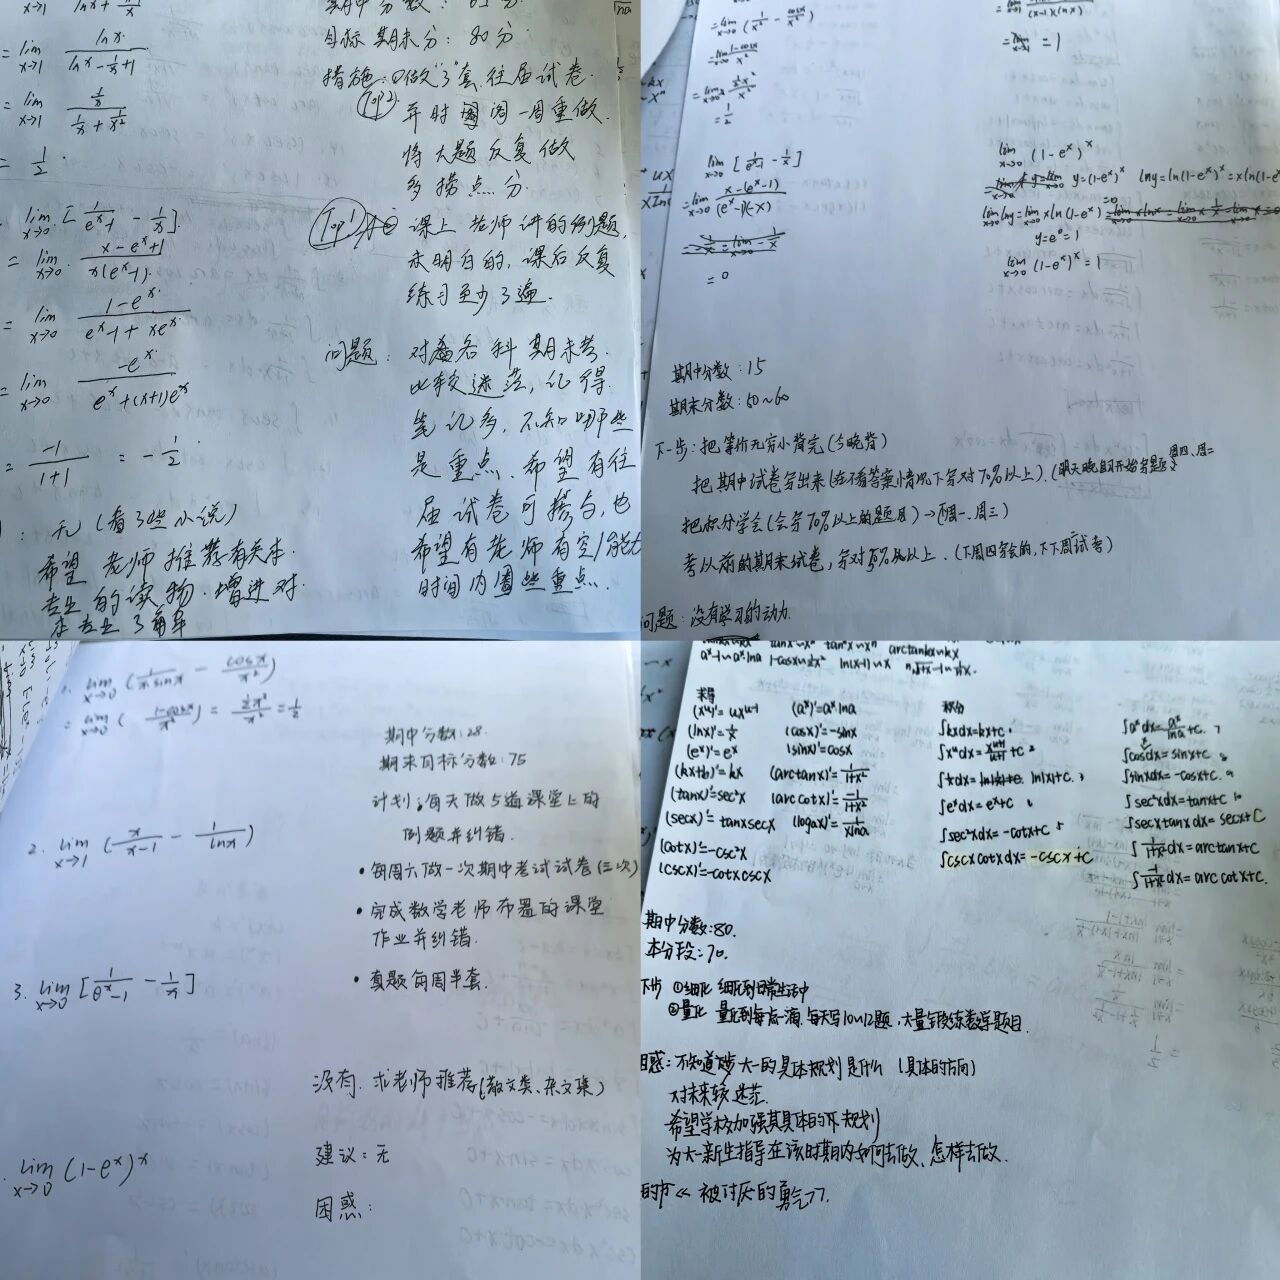 = lim x→1 lnx / (lnx - 1/x + 1)
= lim x→1 (1/x) / (1/x + 1/x²)
= 1/2
lim x→0 [1/(eˣ-1) - 1/x]
= lim x→0 (x-eˣ+1) / x(eˣ-1)
= lim x→0 (1-eˣ) / (eˣ-1+xeˣ)
= lim x→0 -eˣ / (eˣ+(x+1)eˣ)
= -1/(1+1) = -1/2
: 无 (看了些小说)
希望 老师推荐有关本
专业的读物. 增进对
本专业了解
目标期末分: 80分
措施: ①做"3"套往届试卷.
Top2
平时周周一周重做.
将大题反复做
多捞点分.
Top1 ② 课上老师讲的例题,
未明白的, 课后反复
练习至少3遍.
问题: 对各科期末考
比较迷茫, 记得
笔记多, 不知哪些
是重点、希望有往
届试卷可接与, 也
希望有老师有空/能力
时间内圈些重点.
= lim x→0 (1/x² - cosx/x²)
= lim x→0 (1-cosx)/x²
= lim x→0 ½x²/x²
= 1/2
lim x→0 [1/(eˣ-1) - 1/x]
= lim x→0 (x-(eˣ-1)) / (eˣ-1)(-x)
= 0
(x-1)(lnx)
= 1
lim x→0 (1-eˣ)ˣ
y=(1-eˣ)ˣ lny=ln(1-eˣ)ˣ=xln(1-e
lim x→0 lny = lim x→0 xln(1-eˣ)=0
y=e⁰=1
lim x→0 (1-eˣ)ˣ=1
期中分数: 15
期末分数: 50~60
下一步: 把等价无穷小背完(今晚背)
把期中试卷写出来(在不看答案情况下写对70%以上).(明天晚自开始穷题 周四、周二
把积分学会(会写70%以上的题目)→(周一.周三)
考以前的期末试卷, 写对 以上.(下周四写会的, 下下周三试考)
问题: 没有学习的动力.
1. lim x→0 (1/xsinx - cosx/x²)
= lim x→0 ( (1-cosx)/x² ) = ½x²/x² = 1/2
2. lim x→1 (x/(x-1) - 1/lnx)
3. lim x→0 [1/(eˣ-1) - 1/x]
lim x→0 (1-eˣ)ˣ
期中分数: 28.
期末目标分数: 75
计划: 每天做5道课堂上的
例题并纠错.
• 每周六做一次期中考试试卷(三次)
• 完成数学老师布置的课堂
作业并纠错.
• 真题每周半套.
没有. 求老师推荐(散文类、杂文集)
建议: 无
困惑:
tanx~x tan²x~x² arctankx~kx
aˣ-1~aˣlna 1-cosx~½x² ln(x-1)~x
求导
(xᵘ)'=uxᵘ⁻¹ (aˣ)'=aˣlna
(lnx)'=1/x (cosx)'=-sinx
(eˣ)'=eˣ (sinx)'=cosx
(kx+b)'=kx (arctanx)'=1/(1+x²)
(tanx)'=sec²x (arccotx)'=-1/(1+x²)
(secx)'=tanxsecx (logax)'=1/xlna
(cotx)'=-csc²x
(cscx)'=-cotxcscx
积分
∫kdx=kx+c. ∫aˣdx=aˣ/lna+c. 7
∫xᵘdx=xᵘ⁺¹/(u+1)+c 2 ∫cosdx=sinx+c. 8
∫1/x dx= ln|x|+c. 3 ∫sinxdx=-cosx+c. 9
∫eˣdx=eˣ+c ∫sec²xdx=tanx+c 10
∫sec²xdx=-cotx+c 5 ∫secxtanxdx=secx+C
∫cscxcotxdx=-cscx+c ∫1/(1+x²)dx=arctanx+c
∫1/(1+x²)dx=arccotx+c.
期中分数:80.
本分段:70.
下步 ①细化 细化到日常生活中
②量化 量化到每点一滴. 每天写10~12题, 大量锻练数学题目.
困惑: 不知道 大一的具体规划是什么 (具体的方向)
对未来较迷茫.
希望学校加强其具体的 规划
为大一新生指导在该时期内如何去做、怎样去做.
的书《被讨厌的勇气》.